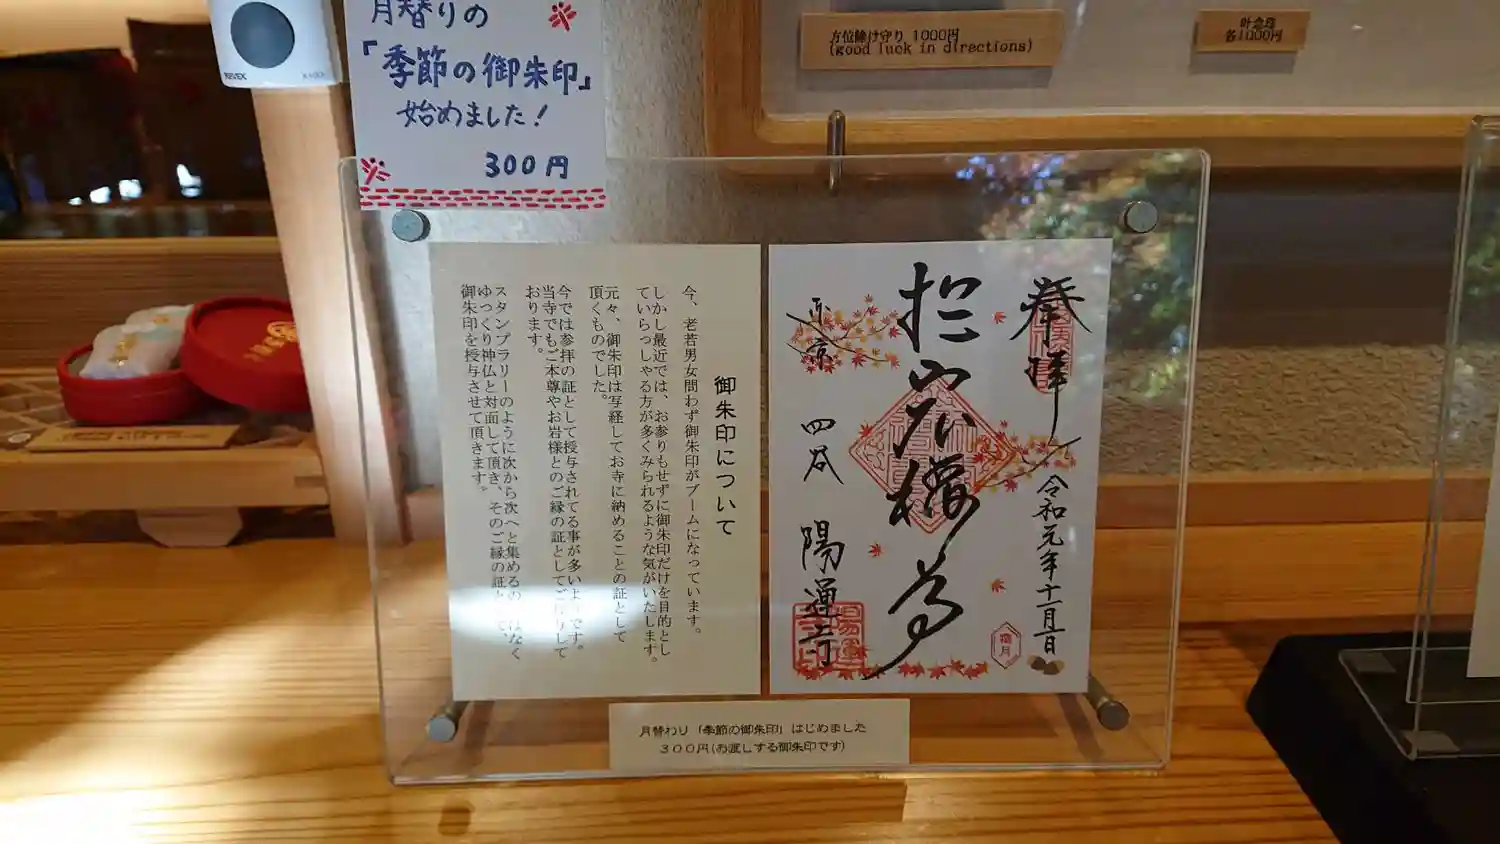 月替りの
「季節の御朱印」
始めました!
300円
方位除け守り 1000円
(good luck in directions)
叶念珠
各1000円
REVEX
御朱印について
今、老若男女問わず御朱印がブームになっています。
しかし最近では、お参りもせずに御朱印だけを目的とし
ていらっしゃる方が多くみられるような気がいたします。
元々、御朱印は写経してお寺に納めることの証として
頂くものでした。
今では参拝の証として授与されてる事が多いようです。
当寺でもご本尊やお岩様とのご縁の証としてご授与して
おります。
スタンプラリーのように次から次へと集めるのではなく
ゆっくり神仏と対面して頂き、そのご縁の証として、
御朱印を授与させて頂きます。
奉拝
令和元年十一月一日
霜月
於岩稲荷
東京
四谷
陽運寺
月替わり「季節の御朱印」はじめました
300円(お渡しする御朱印です)